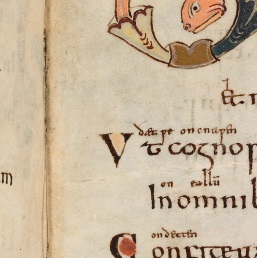 ðæt ƿe oncnaƿen
Vt cogno
on eallū
In omnib
ondetten
Confiteu